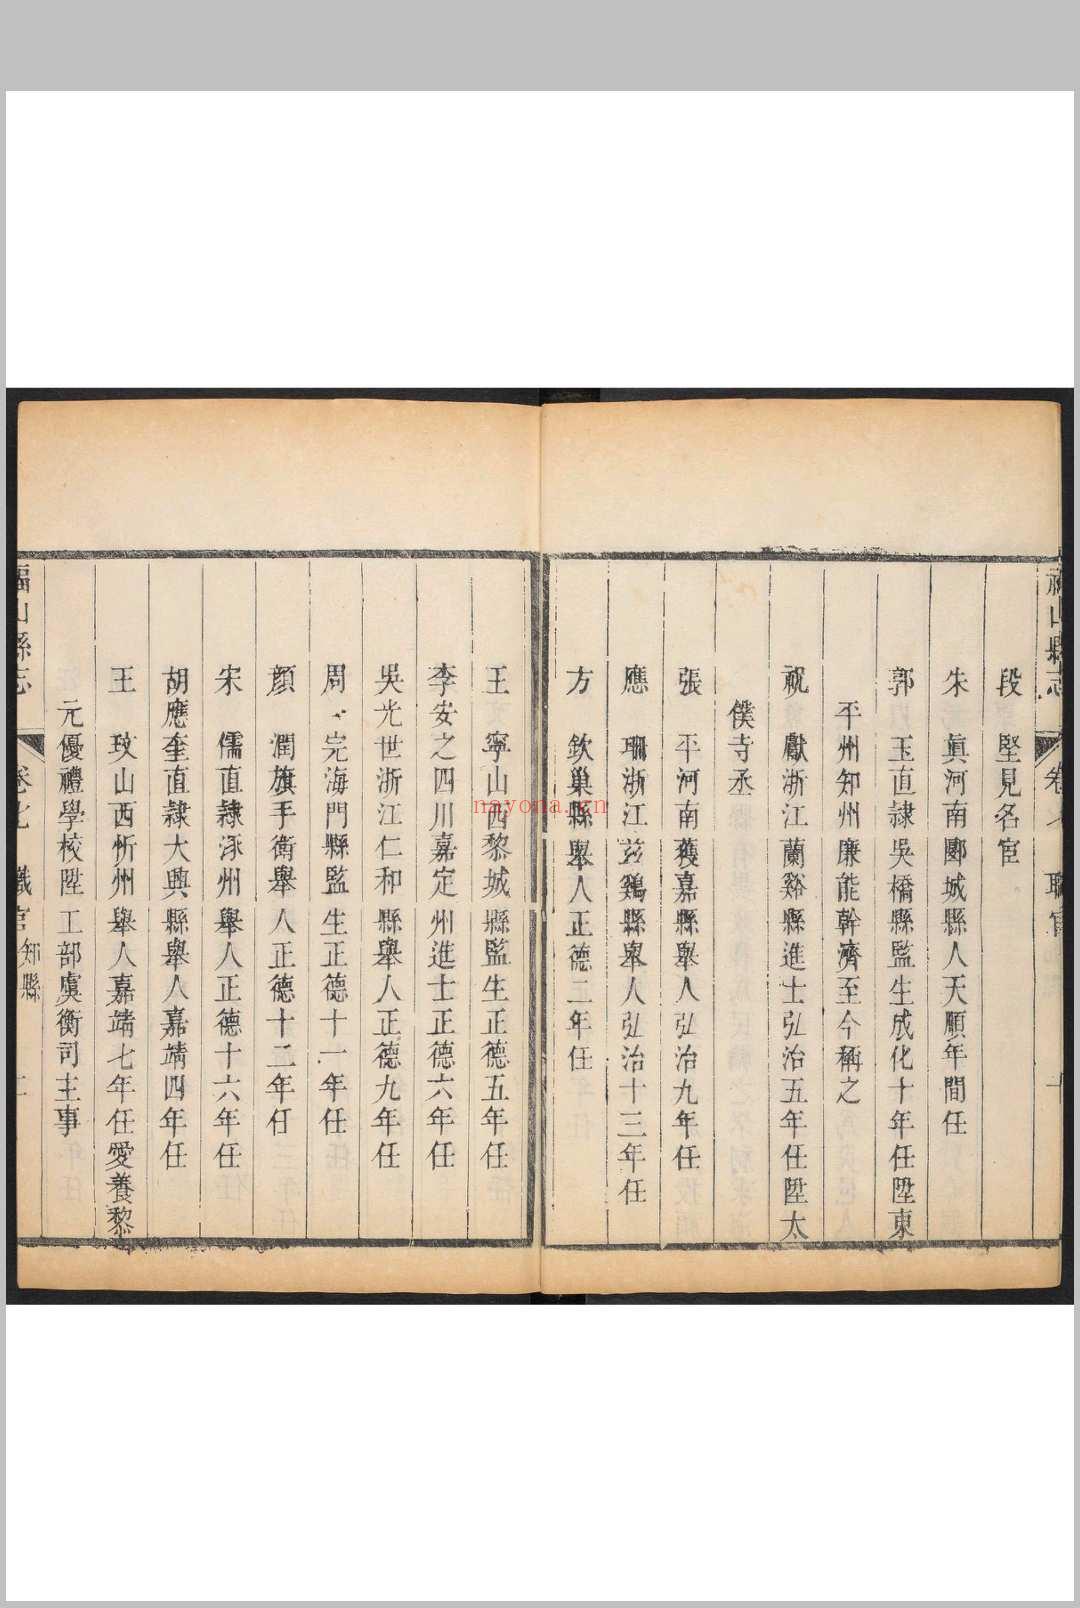 福山縣志 卷七 職官
段 堅見名宦
朱 眞河南郾城縣人天順年間任
郭 玉直隷吳橋縣監生成化十年任陞東
平州知州廉能幹濟至今稱之
祝 獻浙江蘭谿縣進士弘治五年任陞太
僕寺丞
張 平河南獲嘉縣舉人弘治九年任
應 珊浙江玆鷄縣舉人弘治十三年任
方 欽巢縣舉人正德二年任
王 寧山西黎城縣監生正德五年任
李安之四川嘉定州進士正德六年任
吳光世浙江仁和縣舉人正德九年任
周 完海門縣監生正德十一年任
顔 潤旗手衛舉人正德十二年任
宋 儒直隷涿州舉人正德十六年任
胡應奎直隷大興縣舉人嘉靖四年任
王 玟山西忻州舉人嘉靖七年任愛養黎
元優禮學校陞工部虞衡司主事
福山縣志 卷七 職官 知縣 二
nayona.cn